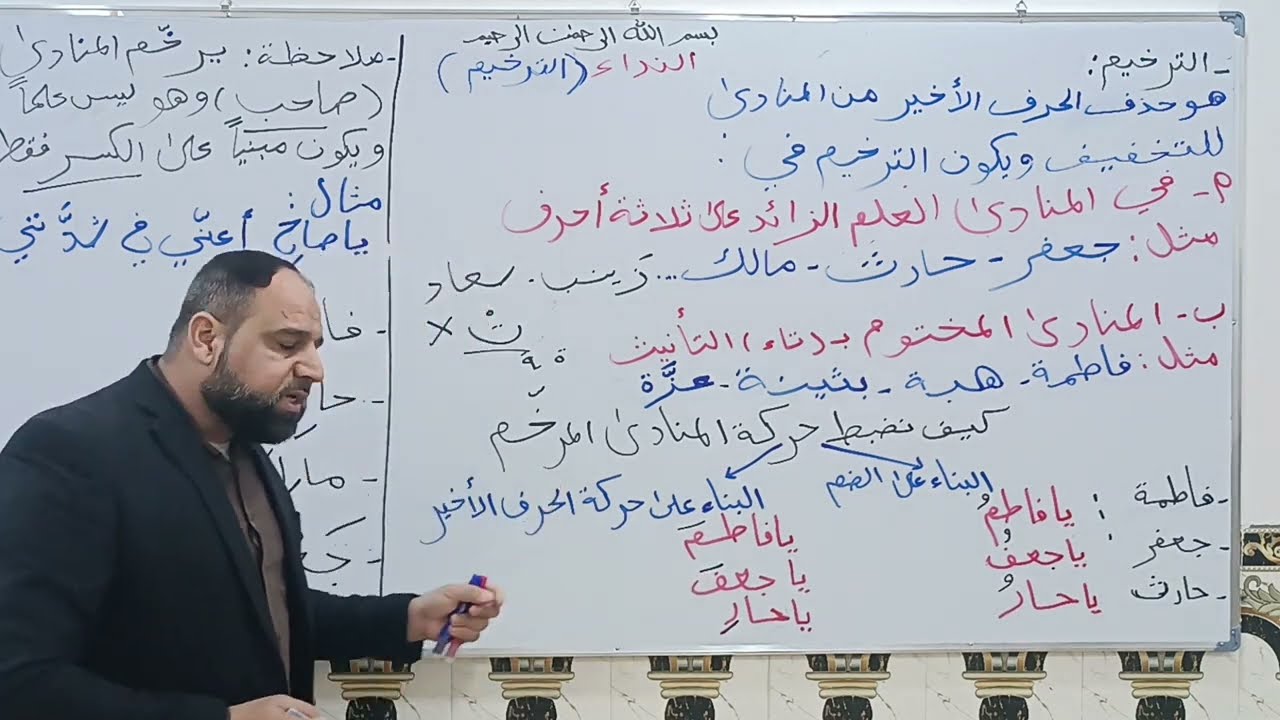 بسم الله الرحمن الرحيم
النداء (الترخيم)
- الترخيم:
هو حذف الحرف الأخير من المنادى
للتخفيف ويكون الترخيم في :
م- في المنادى العلم الزائد على ثلاثة أحرف
مثل: جعفر - حارث - مالك ... زينب - سعاد
ب- المنادى المختوم بـ (تاء) التأنيث
تْ ×
ة ـة
مثل: فاطمة - هبة - بثينة - عزَّة
كيف نضبط حركة المنادى المرخّم
البناء على الضم
البناء على حركة الحرف الأخير
- فاطمة : يا فاطمُ يا فاطمَ
- جعفر : يا جعفُ يا جعفَ
- حارث يا حارُ يا حارِ
- ملاحظة: يرخّم المنادى
(صاحب) وهو ليس علماً
ويكون مبنياً على الكسر فقط
مثال:
يا صاحِ أعنّي في شدَّتي